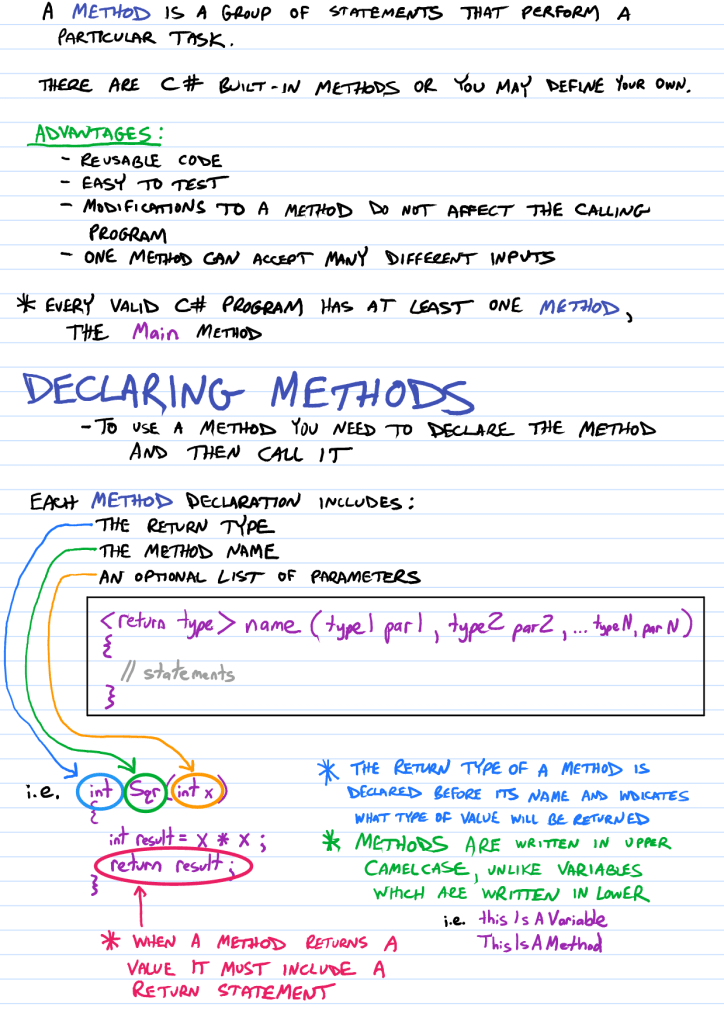 A METHOD IS A GROUP OF STATEMENTS THAT PERFORM A
PARTICULAR TASK.
THERE ARE C# BUILT-IN METHODS OR YOU MAY DEFINE YOUR OWN.
ADVANTAGES:
- REUSABLE CODE
- EASY TO TEST
- MODIFICATIONS TO A METHOD DO NOT AFFECT THE CALLING
PROGRAM
- ONE METHOD CAN ACCEPT MANY DIFFERENT INPUTS
* EVERY VALID C# PROGRAM HAS AT LEAST ONE METHOD,
THE Main METHOD
DECLARING METHODS
- TO USE A METHOD YOU NEED TO DECLARE THE METHOD
AND THEN CALL IT
EACH METHOD DECLARATION INCLUDES:
- THE RETURN TYPE
- THE METHOD NAME
- AN OPTIONAL LIST OF PARAMETERS
<return type> name (type1 par1, type2 par2, ... typeN, parN)
{
// statements
}
i.e. int Sqr (int x)
{
int result = x * x ;
return result ;
}
* WHEN A METHOD RETURNS A
VALUE IT MUST INCLUDE A
RETURN STATEMENT
* THE RETURN TYPE OF A METHOD IS
DECLARED BEFORE ITS NAME AND INDICATES
WHAT TYPE OF VALUE WILL BE RETURNED
* METHODS ARE WRITTEN IN UPPER
CAMELCASE, UNLIKE VARIABLES
WHICH ARE WRITTEN IN LOWER
i.e. thisIsAVariable
ThisIsAMethod